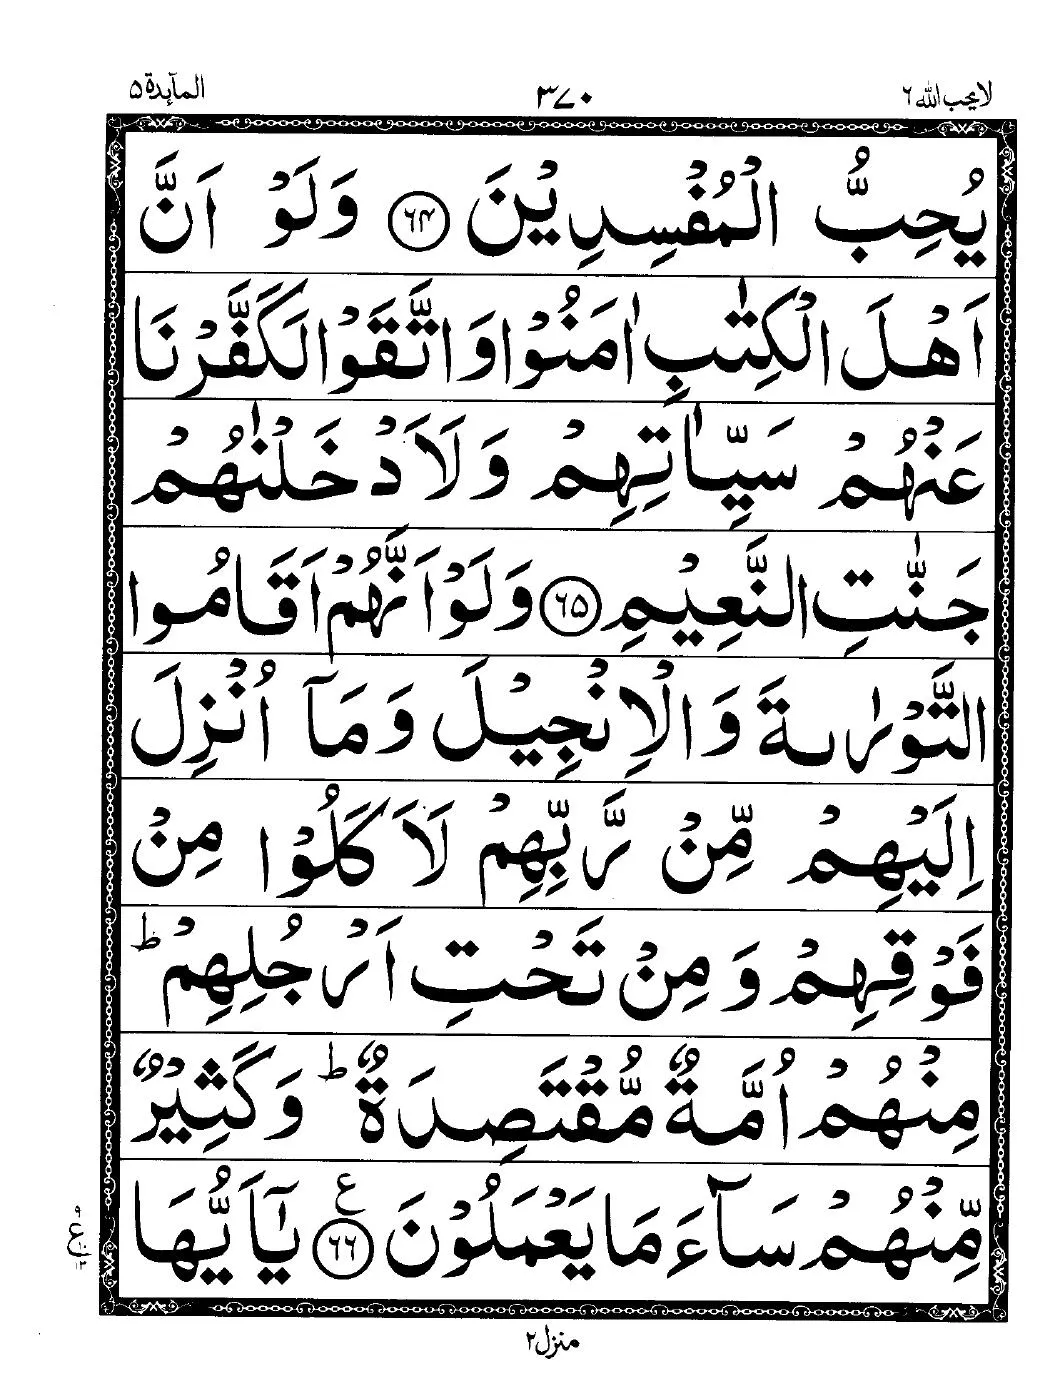 لا يحب الله ٦
٣٧٠
المآىٕدة ٥
يُحِبُّ الْمُفْسِدِيْنَ ﴿٦٤﴾ وَلَوْ اَنَّ
اَهْلَ الْكِتٰبِ اٰمَنُوْا وَاتَّقَوْا لَكَفَّرْنَا
عَنْهُمْ سَيِّاٰتِهِمْ وَلَاَدْخَلْنٰهُمْ
جَنّٰتِ النَّعِيْمِ ﴿٦٥﴾ وَلَوْ اَنَّهُمْ اَقَامُوا
التَّوْرٰىةَ وَالْاِنْجِيْلَ وَمَآ اُنْزِلَ
اِلَيْهِمْ مِّنْ رَّبِّهِمْ لَاَكَلُوْا مِنْ
فَوْقِهِمْ وَمِنْ تَحْتِ اَرْجُلِهِمْ ؕ
مِنْهُمْ اُمَّةٌ مُّقْتَصِدَةٌ ؕ وَكَثِيْرٌ
مِّنْهُمْ سَآءَ مَا يَعْمَلُوْنَ ﴿٦٦﴾ ع يٰٓاَيُّهَا
منزل ٢